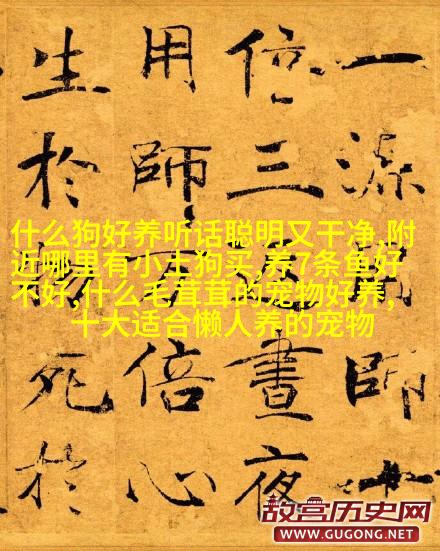 一源師十
倍三晝夜
用師倍心
生於死於
什么狗好养听话聪明又干净,附
近哪里有小土狗买,养7条鱼好
不好,什么毛茸茸的宠物好养,
十大适合懒人养的宠物
故宫历史网
WWW.GUGONG.NET